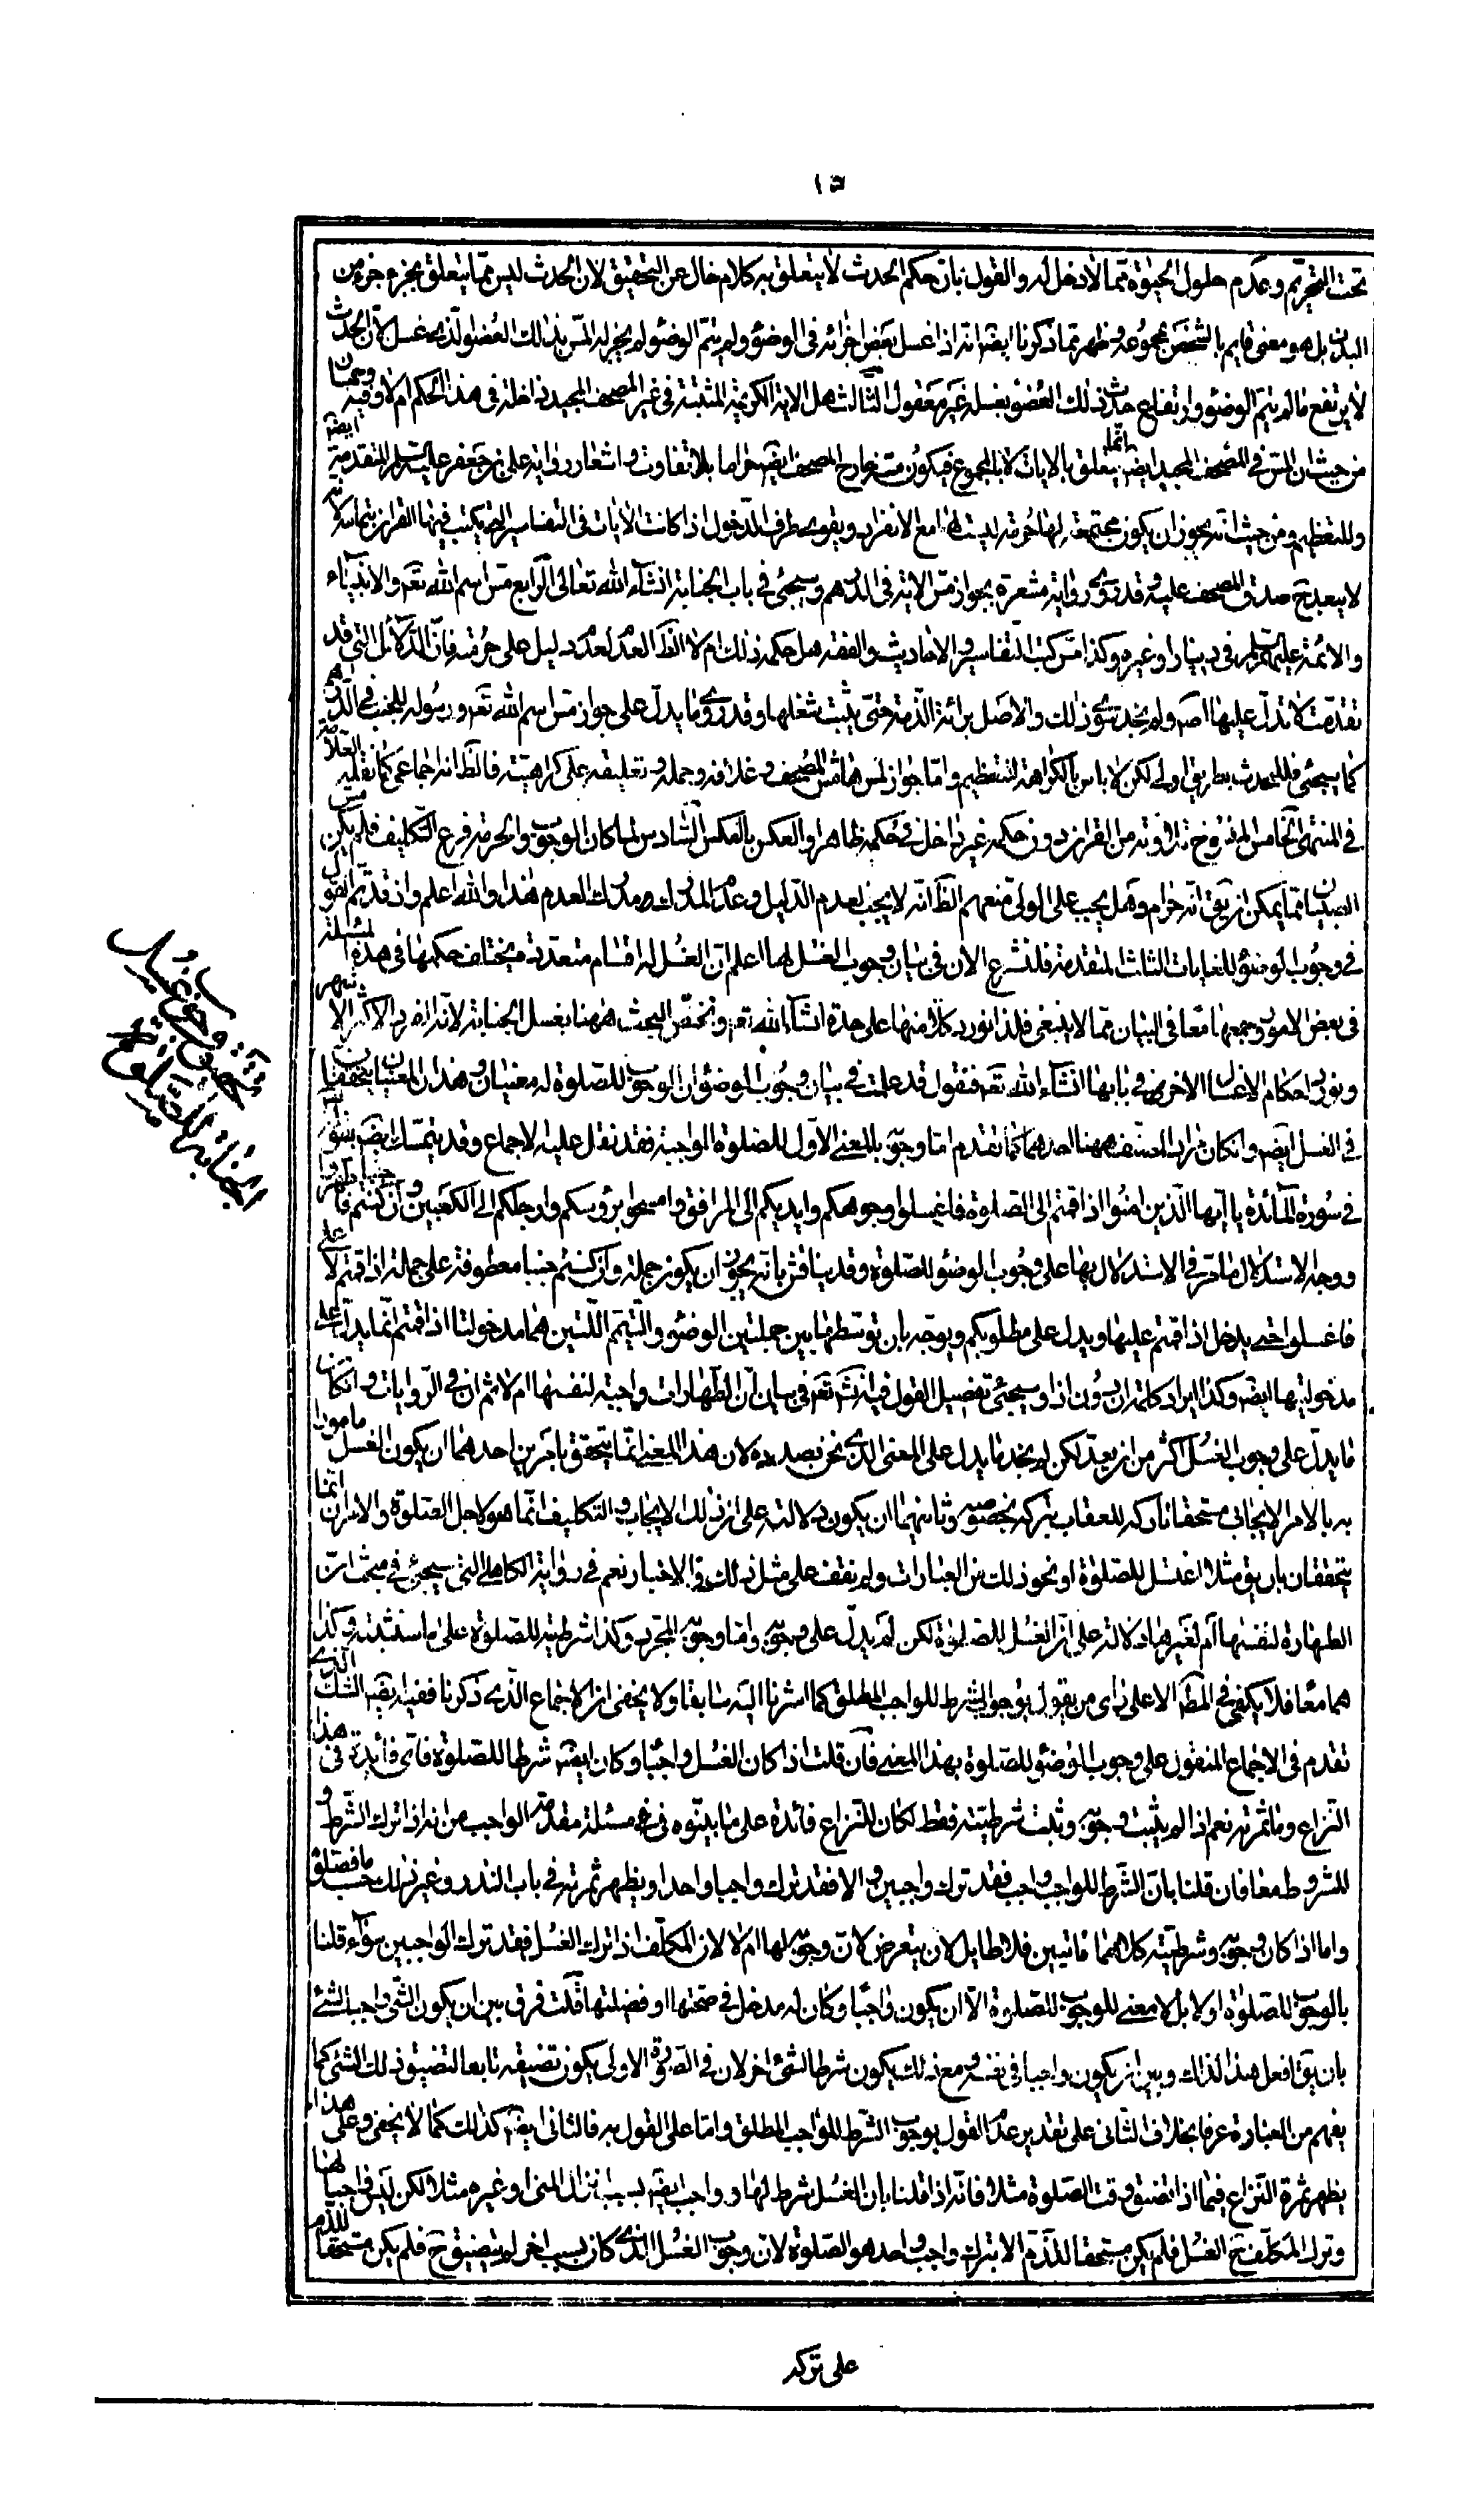 ١٥
تحت التحريم وعدم حلول الحيوة مما لا دخل له والقول بان حكم الحدث لا يتعلق به كلام خال عن التحقيق لان الحدث ليس مما يتعلق بجزء جزء من
البدن بل هو معنى قايم بالشخص بمجموعه وظهر مما ذكرنا ايضا انه اذا غسل بعض اجزائه فى الوضوء ولم يتم الوضوء لم يجز له المس بذلك العضو الذى غسل لان الحدث
لا يرتفع ما لم يتم الوضوء وارتفاع حدث ذلك العضو بغسله غير معقول الثالث هل الاية الكريمة المثبتة فى غير المصحف المجيد داخلة فى هذا الحكم ام لا وفيه وجهان
من حيث ان المس فى المصحف المجيد ايضا انما يتعلق بالايات لا بالمجموع فيكون مس خارج المصحف ايضا حراما بلا تفاوت و اشعار رواية على بن جعفر عليه السلم المتقدمة ايضا
وللتعظيم ومن حيث انه يجوز ان يكون مجتمعة لها حرمة ليست لها مع الانفراد ويقوى طرف الدخول اذا كانت الايات فى التفاسير التى يكتب فيها القران بتمامه لانه
لا يبعد ح صدق المصحف عليه وقد روى رواية مشعرة بجواز مس الاية فى الدرهم وسيجئ فى باب الجنابة انشاء الله تعالى الرابع مس اسم الله تعم والانبياء
والائمة عليهم السلم فى دينار او غيره وكذا مس كتب التفاسير والاحاديث والفقه هل حكمه ذلك ام لا الظ العدم لعدم دليل على حرمته فان الدلائل التى قد
تقدمت لا تدل عليها اصم ولم يجد سوى ذلك والاصل برائة الذمة حتى يثبت شغلها وقد روى ما يدل على جواز مس اسم الله تعم ورسوله للجنب فى الدرهم
كما سيجئ فللمحدث بطريق اولى لكن لا باس بالكراهة للتعظيم واما جواز لمس هامش المصحف وغلافه وحمله وتعليقه على كراهيته فالظ انه اجماعى كما نقله العلامة
فى المنتهى الخامس المنسوخ تلاوته من القران دون حكمه غير داخل فى حكمه ظاهرا والعكس بالعكس السادس لما كان الوجوب والحرمة فرع التكليف فلم يكن مس
الصبيان مما يمكن ان يق انه حرام وهل يجب على الولى منعهم الظ انه لا يجب لعدم الدليل وعدم المدرك مدرك العدم هذا والله اعلم واذ قد تم القول
فى وجوب الوضوء للغايات الثلث المتقدمة فلنشرع الان فى بيان وجوب الغسل لها اعلم ان الغسل له اقسام متعددة ويختلف حكمها فى هذه المسئلة
فى بعض الامور وجمعها معا فى البيان مما لا ينبغى فلذا نورد كلا منها على حدة انشاء الله تعم ونخص البحث ههنا بغسل الجنابة لانه الفرد الاكثر الاشهر
ونورد احكام الاغسال الاخرى فى بابها انشاء الله تعم فنقول قد علمت فى بيان وجوب الوضوء ان الوجوب للصلوة له معنيان وهذان المعنيان يتحققان
فى الغسل ايضا وان كان مراد المصنف ههنا احدهما كما تقدم اما وجوبه بالمعنى الاول للصلوة الواجبة فقد نقل عليه الاجماع وقد يتمسك ايضا بقوله تعم
فى سورة المائدة يا ايها الذين امنوا اذا قمتم الى الصلوة فاغسلوا وجوهكم وايديكم الى المرافق وامسحوا برؤسكم وارجلكم الى الكعبين وان كنتم جنبا فاطهروا
ووجه الاستدلال ما مر فى الاستدلال بها على وجوب الوضوء للصلوة وقد يناقش بانه يجوز ان يكون جملة وان كنتم جنبا معطوفة على جملة اذا قمتم لا على
فاغسلوا حتى يدخل اذا قمتم عليها ويدل على مطلوبكم ويوجه بان توسطها بين جملتين الوضوء والتيمم اللتين هما مدخولتا اذا قمتم انما يدل على
مدخوليتها ايضا وكذا ايراد كلمة ان دون اذا وسيجئ تفصيل القول فيه انش تعم فى بيان ان الطهارات واجبة لنفسها ام لا ثم ان فى الروايات وان كان
ما يدل على وجوب الغسل اكثر من ان يعد لكن لم يجد ما يدل على المعنى الذى نحن بصدده لان هذا المعنى انما يتحقق بامرين احدهما ان يكون الغسل مامورا
به بالامر الايجابى مستحقا تاركه للعقاب بتركه بخصوصه وثانيهما ان يكون دلالته على ان ذلك الايجاب والتكليف انما هو لاجل الصلوة والامران انما
يتحققان بان يق مثلا اغتسل للصلوة او نحو ذلك من العبارات ولم نقف على مثل ذلك فى الاخبار نعم فى رواية الكاهلى التى سيجئ فى مبحث ان
الطهارة لنفسها ام لغيرها دلالة على ان الغسل للصلوة لكن لم يدل على وجوبه واما وجوبه المجرد وكذا شرطيته للصلوة على ما ستثبته وكذا
هما معا فلا يكفى فى المط الا على راى من يقول بوجوب الشرط للواجب المطلق كما اشرنا اليه سابقا ولا يخفى ان الاجماع الذى ذكرنا ففيه ايضا الشك الذى
تقدم فى الاجماع المنقول على وجوب الوضوء للصلوة بهذا المعنى فان قلت اذا كان الغسل واجبا وكان ايضا شرطا للصلوة فاى فائدة فى هذا
النزاع وما ثمرته نعم اذا لم يثبت وجوبه وثبت شرطيته فقط لكان للنزاع فائدة على ما بينوه فى مسئلة مقدمة الواجب من انه اذا ترك الشرط و
المشروط معا فان قلنا بان الشرط للواجب واجب فقد ترك واجبين والا فقد ترك واجبا واحدا ويظهر ثمرته فى باب النذر وغير ذلك حسب ما فصلوه
واما اذا كان وجوبه وشرطيته كلاهما ثابتين فلا طايل لان يتعرض لان وجوبه لها ام لا لان المكلف اذا ترك الغسل فقد ترك الواجبين سواء قلنا
بالوجوب للصلوة اولا بل لا معنى للوجوب للصلوة الا ان يكون واجبا وكان له مدخل فى صحتها او فضلها قلت فرق بين ان يكون الشئ واجبا لشئ
بان يق افعل هذا لذاك وبين ان يكون واجبا فى نفسه ومع ذلك يكون شرطا لشئ اخر لان فى الصورة الاولى يكون تضيقه تابعا لتضيق ذلك الشئ كما
يفهم من العبارة عرفا بخلاف الثانى على تقدير عدم القول بوجوب الشرط للواجب المطلق واما على القول به فالثانى ايضا كذلك كما لا يخفى وعلى هذا
يظهر ثمرة النزاع فيما اذا تضيق وقت الصلوة مثلا فانه اذا قلنا بان الغسل شرط لها وواجب ايضا بسبب انزال المنى او غيره مثلا لكن ليس واجبا لها
وترك المكلف ح الغسل فلم يكن مستحقا للذم الا بترك واجب واحد هو الصلوة لان وجوب الغسل الذى كان بسبب اخر لم يتضيق ح فلم يكن مستحقا للذم
على تركه